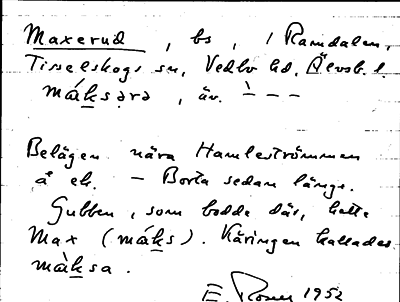 Maxerud, bs, i Ramdalen,
Tisselskogs sn, Vedbo hd, Älvsb. l.
má̱ksərə, äv. `---
Belägen nära Hamleströmmen
å eh. - Borta sedan länge.
Gubben, som bodde där, hette
Max (máks). Käringen kallades
màksa.
E. 1952